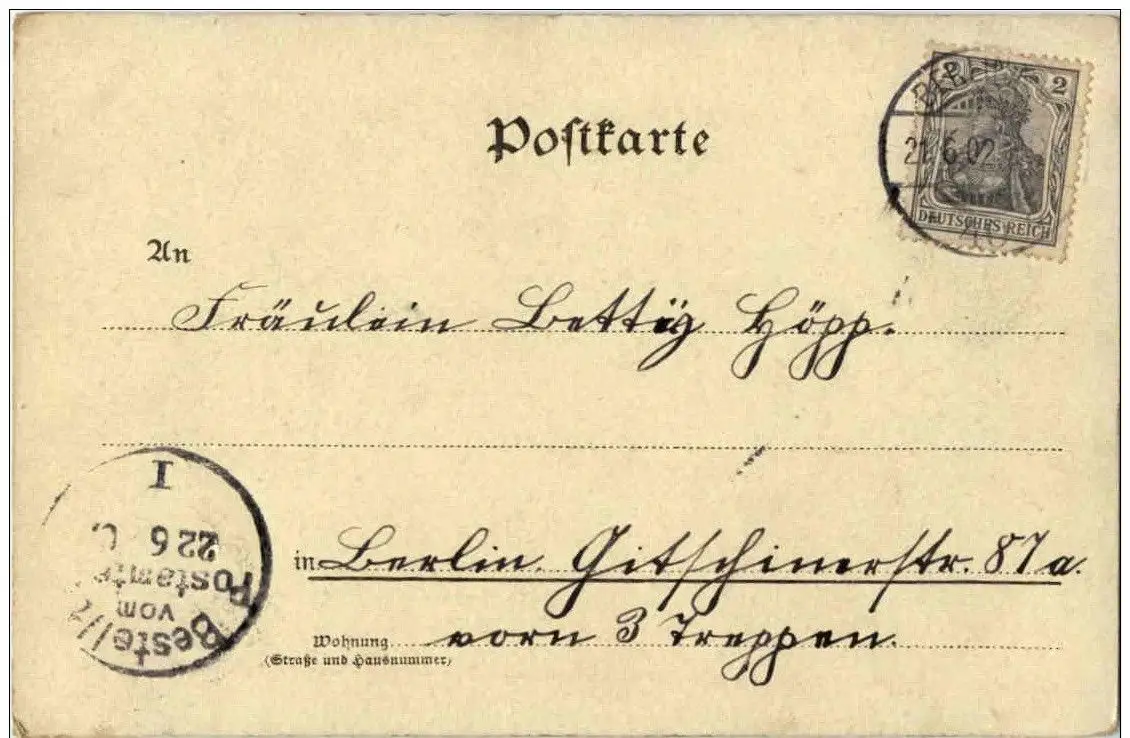 Postkarte
2
BERLIN
21.6.02
DEUTSCHES REICH
An
Fräulein Betty Höpp.
in Berlin. Gitschinerstr. 87a.
Wohnung vorn 3 Treppen.
(Straße und Hausnummer)
Bestellt
vom
Postamte
22 6
I